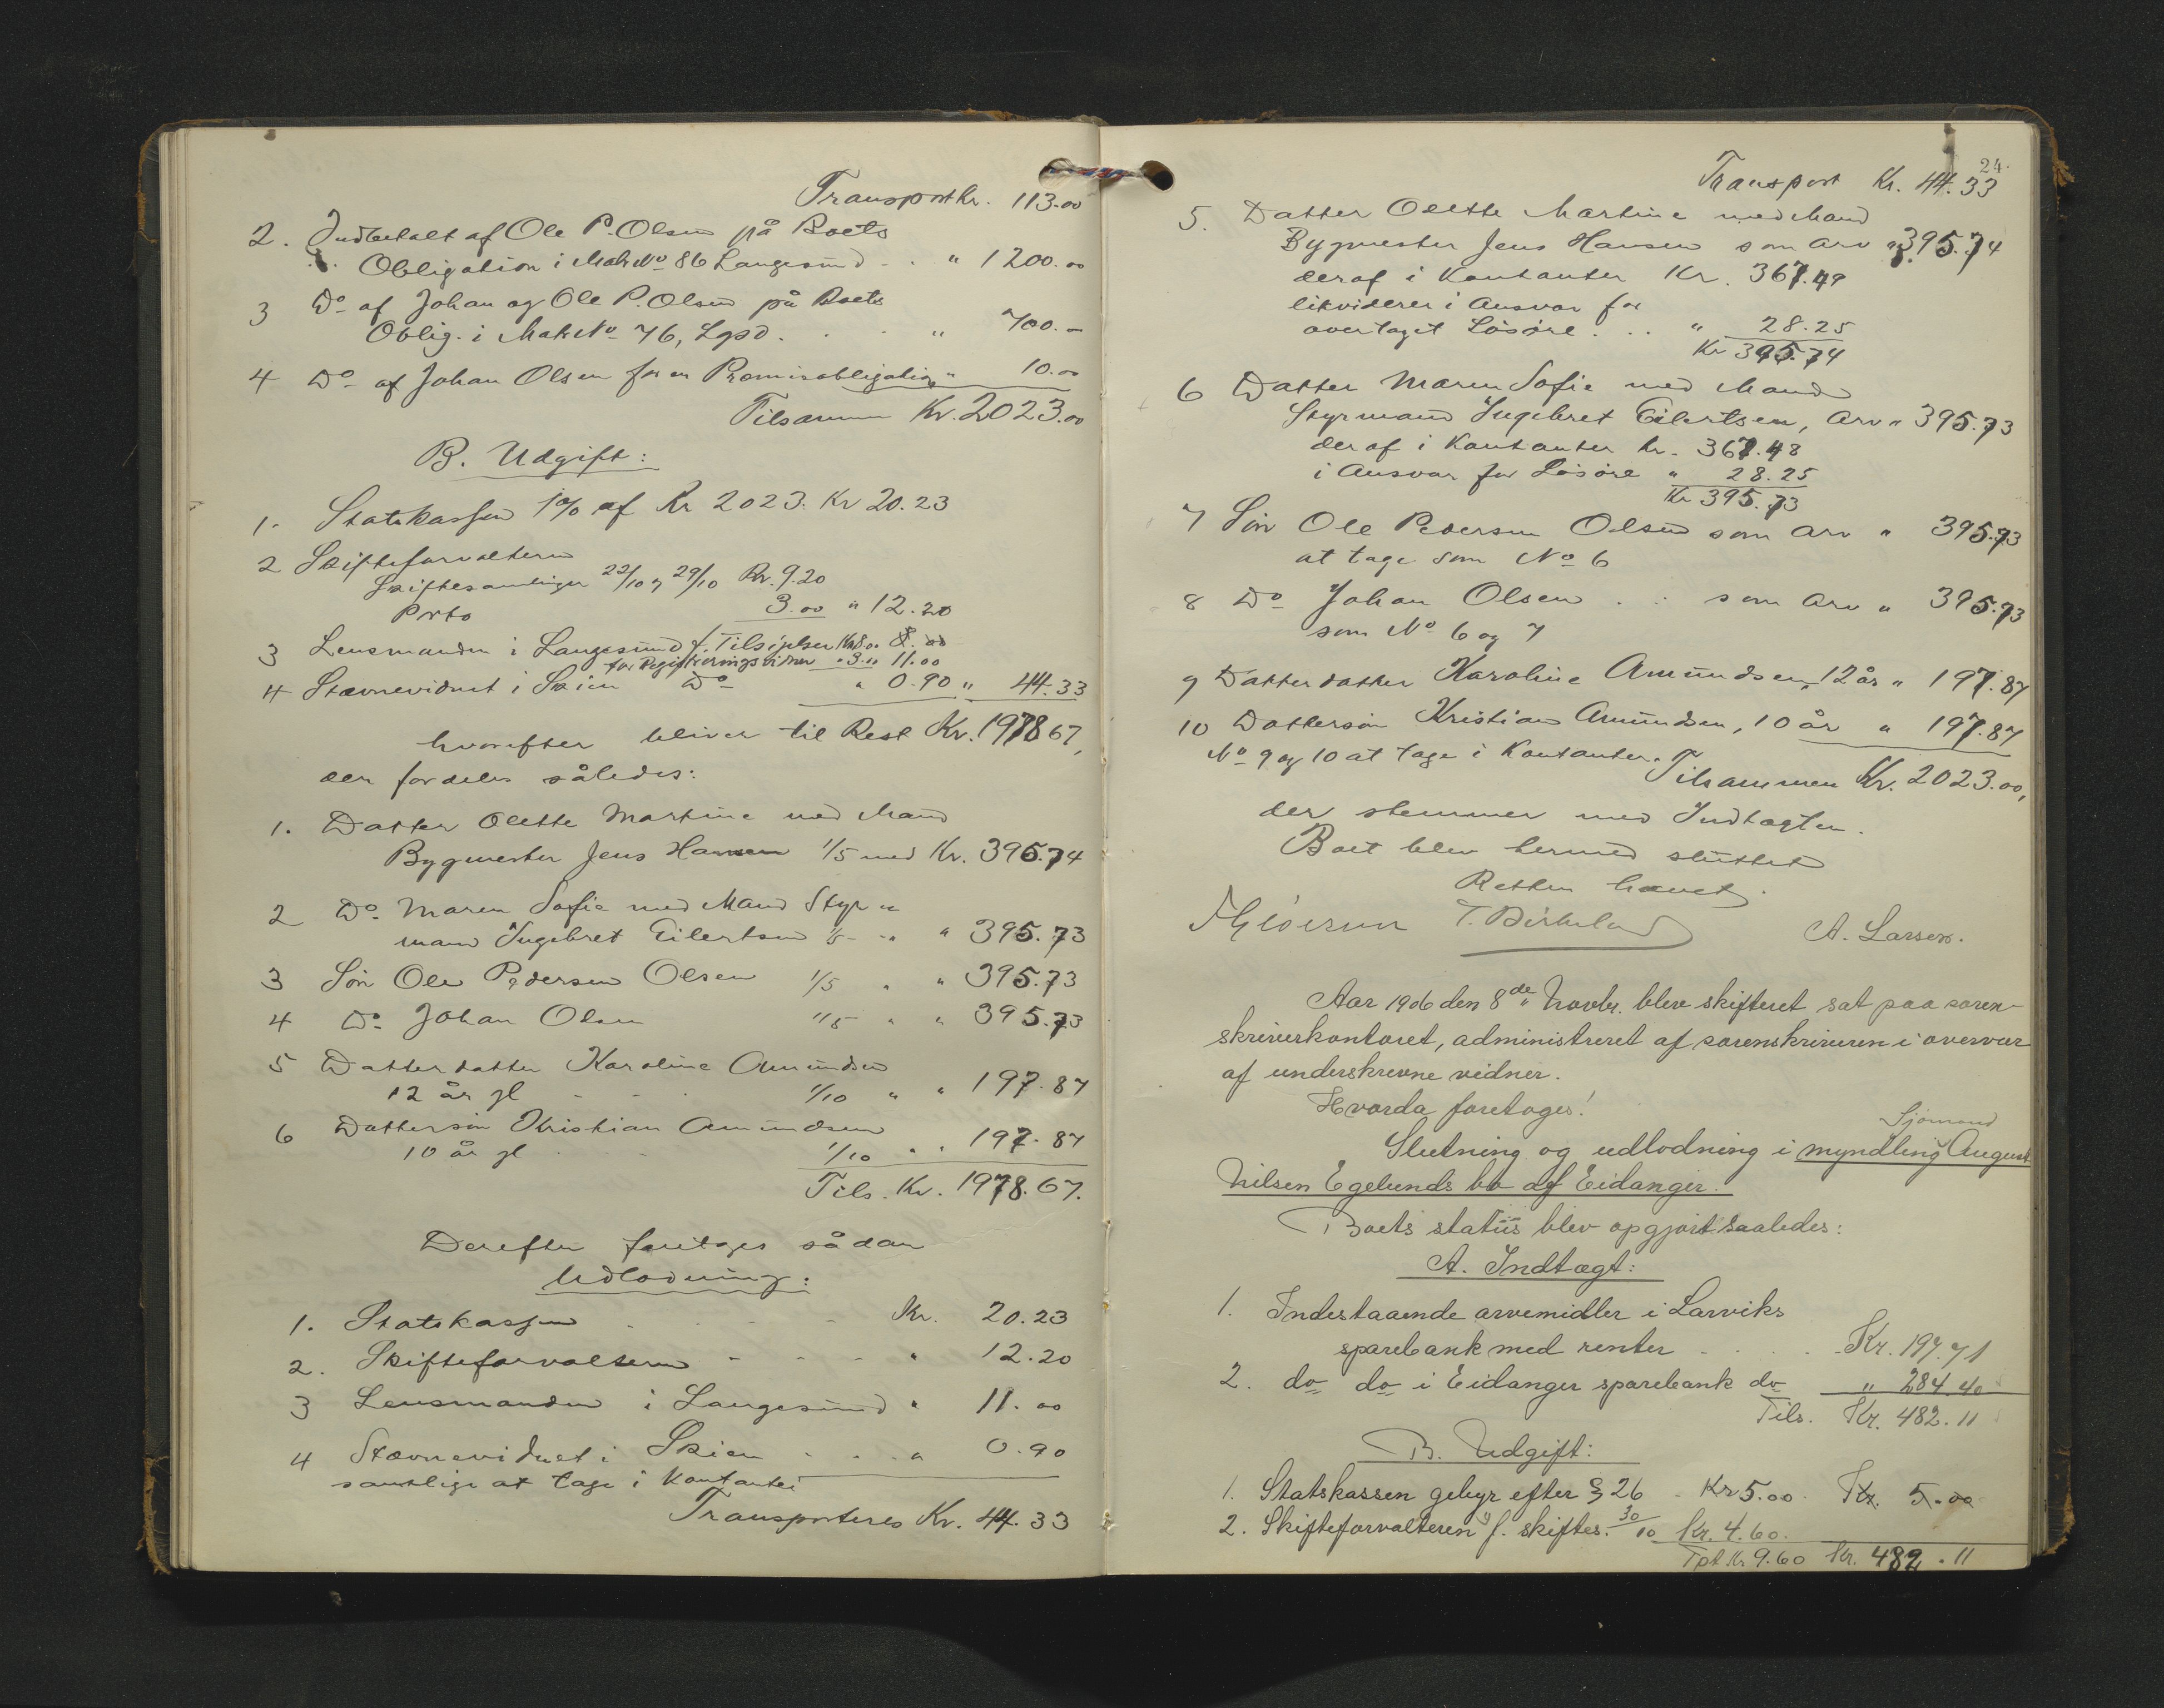 Transport Kr. 113.00
2. Indbetalt af Ole P. Olsen på Boets
Obligation i Matr No 86 Langesund - . " 1200.00
3 Do af Johan og Ole P. Olsen på Boets
Oblig. i Matr No 76, Lgsd. . . " 700.-
4 Do af Johan Olsen for en Promisobligation " 10.00
Tilsammen Kr. 2023.00
B. Udgift:
1. Statskassen 1% af Kr 2023. Kr 20.23
2 Skifteforvalteren
Skiftesamlinger 22/10 og 29/10 Kr. 9.20
Porto 3.00 " 12.20
3 Lensmanden i Langesund f. Tilsigelser Kr 8.00 8.00
for Registreringsvidner " 3.00 11.00
4 Stævnevidnet i Skien Do " 0.90 " 44.33
hvorefter bliver til Rest Kr. 1978 67,
der fordeles således:
1. Datter Olette Martine med Mand
Bygmester Jens Hansen 1/5 med Kr. 395.74
2 Do Maren Sofie med Mand Styr "
mand Ingebret Eilertsen 1/5 - " " 395.73
3 Søn Ole Pedersen Olsen 1/5 " " 395.73
4 Do Johan Olsen 1/5 " " 395.73
5 Datterdatter Karoline Amundsen
12 år gl - . . 1/10 " " 197.87
6 Dattersøn Kristian Amundsen
10 år gl . . 1/10 " " 197.87
Tils. Kr. 1978.67.
Derefter foretages sådan
Udlodning:
1. Statskassen - - - - Kr. 20.23
2. Skifteforvalteren - - - " 12.20
3 Lensmanden i Langesund " 11.00
4 Stævnevidnet i Skien . . " 0.90
samtlige at tage i Kontanter
Transporteres Kr. 44.33
24.
Transport Kr. 44.33
5. Datter Olette Martine med Mand
Bygmester Jens Hansen som Arv " 395.74
deraf i Kontanter Kr. 367.49
likviderer i Ansvar for
overtaget Løsøre . . . " 28.25
Kr 395.74
6 Datter Maren Sofie med Mand
Styrmand Ingebret Eilertsen, Arv " 395.73
deraf i Kontanter Kr. 367.48
i Ansvar for Løsøre " 28.25
Kr 395.73
7 Søn Ole Pedersen Olsen som Arv " 395.73
at tage som No 6
8 Do Johan Olsen . . som Arv " 395.73
som No 6 og 7
9 Datterdatter Karoline Amundsen, 12 år " 197.87
10 Dattersøn Kristian Amundsen, 10 år " 197.87
No 9 og 10 at tage i Kontanter.
Tilsammen Kr. 2023.00,
der stemmer med Indtægten.
Boet blev hermed sluttet
Retten hævet.
T. Birkeland A. Larsen.
Aar 1906 den 8de Novbr. blev skifteret sat paa soren-
skriverkontoret, administreret af sorenskriveren i overvær
af underskrevne vidner.
Hvorda foretoges!
Sjömand
Slutning og udlodning i myndling August
Nilsen Egelunds bo af Eidanger.
Boets status blev opgjort saaledes:
A. Indtægt:
1. Indestaaende arvemidler i Larviks
sparebank med renter - . . . - Kr. 197.71
2. do do i Eidanger sparebank do " 284.40
Tils. Kr. 482.11
B. Udgift:
1. Statskassen gebyr efter § 26 - Kr 5.00 Kr. 5.00
2. Skifteforvalteren f. skiftes. 30/10 Kr. 4.60.
Tpt Kr 9.60 Kr. 482.11